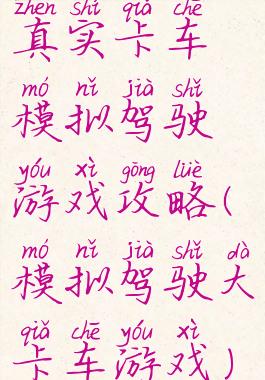 zhēn shí qiǎ chē
真实卡车
mó nǐ jià shǐ
模拟驾驶
yóu xì gōng lüè
游戏攻略(
mó nǐ jià shǐ dà
模拟驾驶大
qiǎ chē yóu xì
卡车游戏)